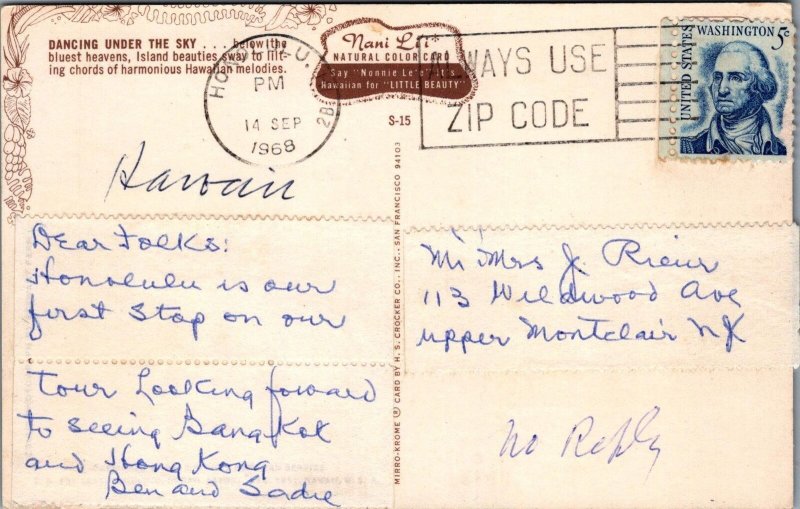 DANCING UNDER THE SKY . . . below the
bluest heavens, Island beauties sway to lilt-
ing chords of harmonious Hawaiian melodies.
Nani Li'i*
NATURAL COLOR CARD
Say "Nonnie Le'e" It's
Hawaiian for "LITTLE BEAUTY"
S-15
HONOLULU.
PM
14 SEP
1968
2B
ALWAYS USE
ZIP CODE
WASHINGTON 5c
UNITED STATES
Hawaii
Dear Folks:
Honolulu is our
first stop on our
Tour Looking forward
to seeing Bangkok
and Hong Kong
Ben and Sadie
MIRRO-KROME ® CARD BY H. S. CROCKER CO., INC., SAN FRANCISCO 94103
Mr Mrs J.
113 Wildwood Ave
upper Montclair NJ
No Reply